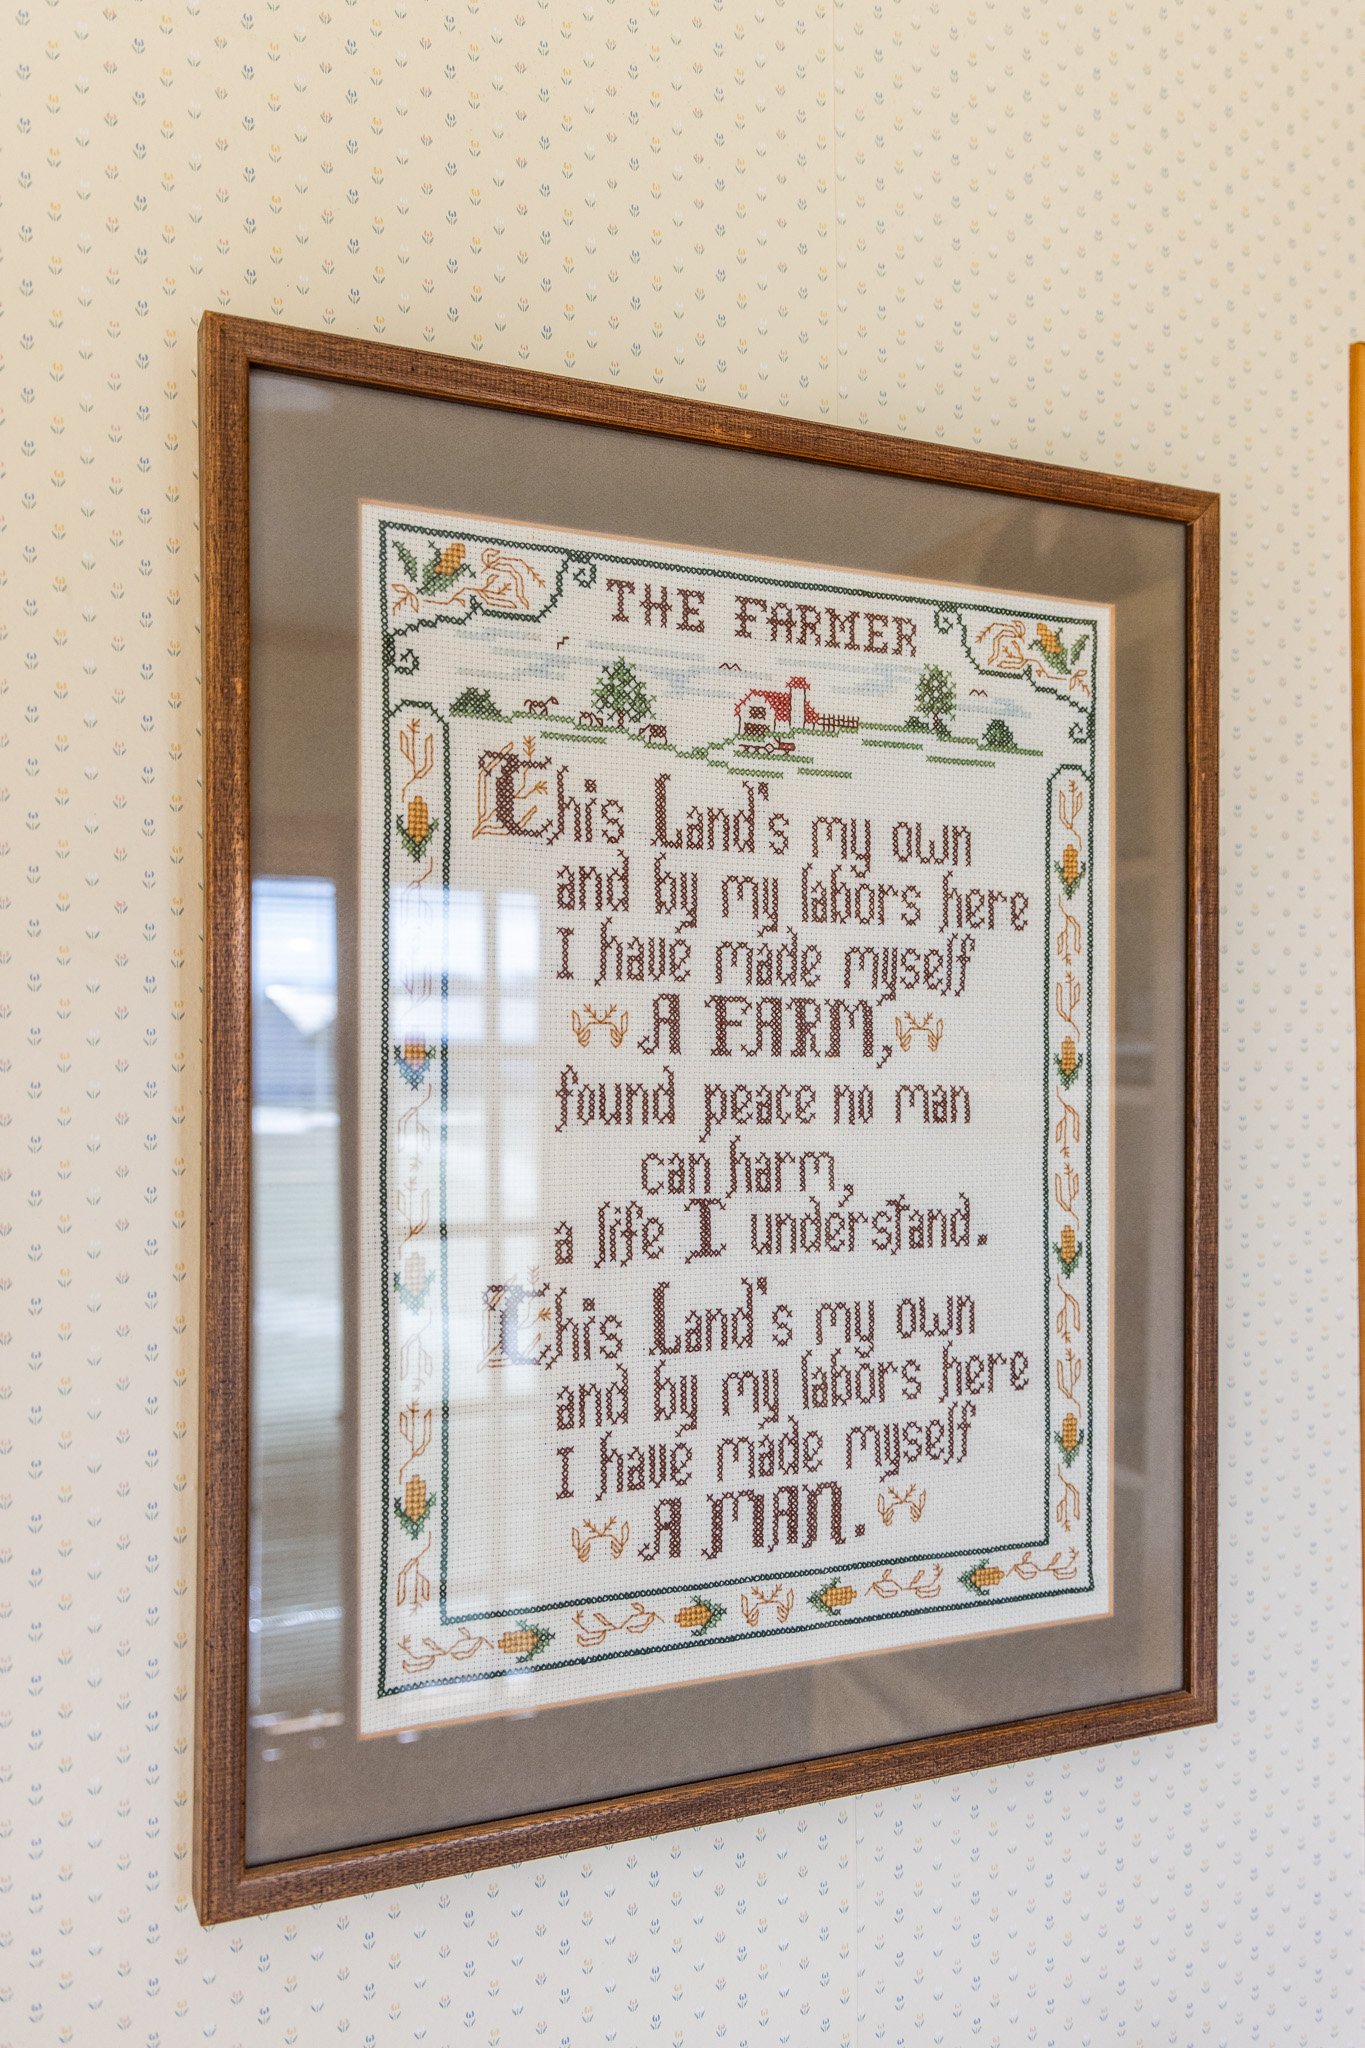 THE FARMER
This Land's my own
and by my labors here
I have made myself
A FARM,
found peace no man
can harm,
a life I understand.
This Land's my own
and by my labors here
I have made myself
A MAN.